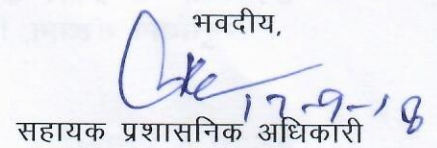 भवदीय,
17-9-18
सहायक प्रशासनिक अधिकारी